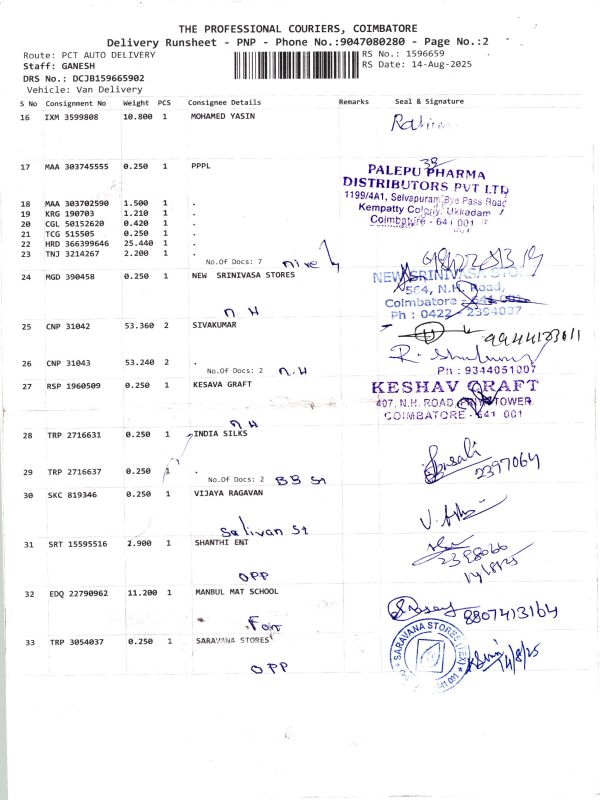 THE PROFESSIONAL COURIERS, COIMBATORE
Delivery Runsheet - PNP - Phone No.:9047080280 - Page No.:2
Route: PCT AUTO DELIVERY
RS No.: 1596659
Staff: GANESH
RS Date: 14-Aug-2025
DRS No.: DCJB159665902
Vehicle: Van Delivery
S No Consignment No Weight PCS Consignee Details Remarks Seal & Signature
16 IXM 3599808 10.800 1 MOHAMED YASIN
17 MAA 303745555 0.250 1 PPPL
39
PALEPU PHARMA
DISTRIBUTORS PVT LTD
1199/4A1, Selvapuram Bye Pass Road
Kempatty Colony, Ukkadam
Coimbatore - 641 001
18 MAA 303702590 1.500 1 .
19 KRG 190703 1.210 1 .
20 CGL 50152620 0.420 1 .
21 TCG 515505 0.250 1 .
22 HRD 366399646 25.440 1 .
23 TNJ 3214267 2.200 1 .
No.Of Docs: 7
24 MGD 390458 0.250 1 NEW SRINIVASA STORES
NEW SRINIVASA STORES
564, N.H. Road,
Coimbatore - 641 001
Ph : 0422 - 2394037
N H
25 CNP 31042 53.360 2 SIVAKUMAR
26 CNP 31043 53.240 2 .
No.Of Docs: 2 N.H
Ph : 9344051007
27 RSP 1960509 0.250 1 KESAVA GRAFT
KESHAV GRAFT
407, N.H. ROAD, TOWER
COIMBATORE - 641 001
N H
28 TRP 2716631 0.250 1 INDIA SILKS
29 TRP 2716637 0.250 1 .
No.Of Docs: 2 BB St
2397064
30 SKC 819346 0.250 1 VIJAYA RAGAVAN
Salivan St
31 SRT 15595516 2.900 1 SHANTHI ENT
2398066
14/8/25
OPP
32 EDQ 22790962 11.200 1 MANBUL MAT SCHOOL
8807413164
33 TRP 3054037 0.250 1 SARAVANA STORES
SARAVANA STORES (TEX)
641 001
14/8/25
OPP